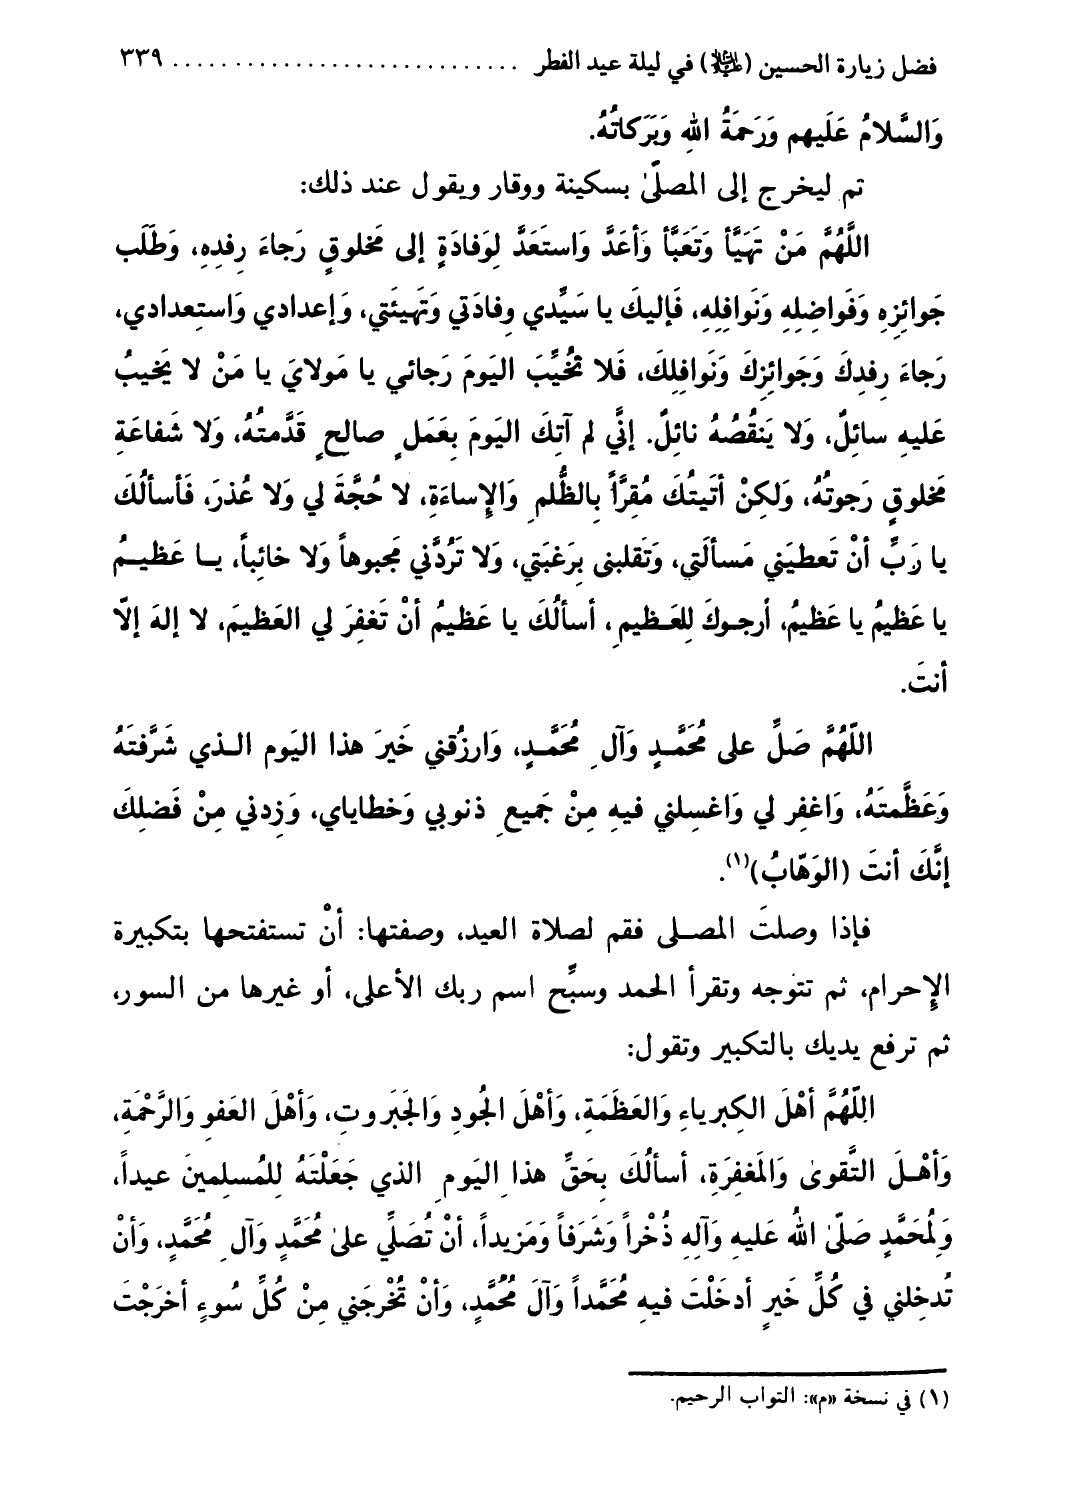 فضل زيارة الحسين (عليه السلام) في ليلة عيد الفطر ............................. ٣٣٩
وَالسَّلامُ عَلَيهم وَرَحمَةُ اللهِ وَبَرَكاتُهُ.
ثم ليخرج إلى المصلّىٰ بسكينة ووقار ويقول عند ذلك:
اللَّهُمَّ مَنْ تَهَيَّأ وَتَعَبَّأ وَأعَدَّ وَاستَعَدَّ لِوَفادَةٍ إلى مَخلوقٍ رَجاءَ رِفدِهِ، وَطَلَب
جَوائِزِهِ وَفَواضِلِهِ وَنَوافِلِهِ، فَإليكَ يا سَيِّدي وِفادَتي وَتَهيئَتي، وَإعدادي وَاستِعدادي،
رَجاءَ رِفدِكَ وَجَوائِزِكَ وَنَوافِلِكَ، فَلا تُخَيِّبَ اليَومَ رَجائي يا مَولايَ يا مَنْ لا يَخيبُ
عَليهِ سائِلٌ، وَلا يَنقُصُهُ نائِلٌ. إنَّي لم آتِكَ اليَومَ بِعَمَلٍ صالِحٍ قَدَّمتُهُ، وَلا شَفاعَةِ
مَخلوقٍ رَجوتُهُ، وَلكِنْ أتَيتُكَ مُقِرَّاً بِالظُّلمِ وَالإِساءَةِ، لا حُجَّةَ لي وَلا عُذرَ، فَأسألُكَ
يا رَبِّ أنْ تَعطيَني مَسألَتي، وَتَقلبنى بِرَغبَتي، وَلا تَرُدَّني مَجبوهاً وَلا خائباً، يــا عَظيـمُ
يا عَظيمُ يا عَظيمُ، أرجـوكَ لِلعَـظيمِ، أسألُكَ يا عَظيمُ أنْ تَغفِرَ لي العَظيمَ، لا إلهَ إلّا
أنتَ.
اللّهُمَّ صَلِّ على مُحَمَّـدٍ وَآلِ مُحَمَّـدٍ، وَارزُقني خَيرَ هذا اليَوم الـذي شَرَّفتَهُ
وَعَظَّمتَهُ، وَاغفِر لي وَاغسِلني فيهِ مِنْ جَميعِ ذنوبي وَخطاياي، وَزِدني مِنْ فَضلِكَ
إنَّكَ أنتَ (الوَهّابُ)(١).
فإذا وصلتَ المصـلى فقم لصلاة العيد، وصفتها: أنْ تستفتحها بتكبيرة
الإحرام، ثم تتوجه وتقرأ الحمد وسبِّح اسم ربك الأعلى، أو غيرها من السور،
ثم ترفع يديك بالتكبير وتقول:
اللّهُمَّ أهْلَ الكِبرياءِ وَالعَظَمَةِ، وَأهْلَ الجُودِ وَالجَبَروتِ، وَأهْلَ العَفوِ وَالرَّحْمَةِ،
وَأهْـلَ التَّقوىٰ وَالمَغفِرَةِ، أسألُكَ بِحَقِّ هذا اليَومِ الذي جَعَلْتَهُ لِلمُسلِمينَ عيداً،
وَلِمُحَمَّدٍ صَلّىٰ اللهُ عَليهِ وَآلِهِ ذُخْراً وَشَرَفاً وَمَزيداً، أنْ تُصَلِّي علىٰ مُحَمَّدٍ وَآلِ مُحَمَّدٍ، وَأنْ
تُدخِلني في كُلِّ خَيرٍ أدخَلْتَ فيهِ مُحَمَّداً وَآلَ مُحُمَّدٍ، وَأنْ تُخْرِجَني مِنْ كُلِّ سُوءٍ أخرَجْتَ
(١) في نسخة «م»: التواب الرحيم.